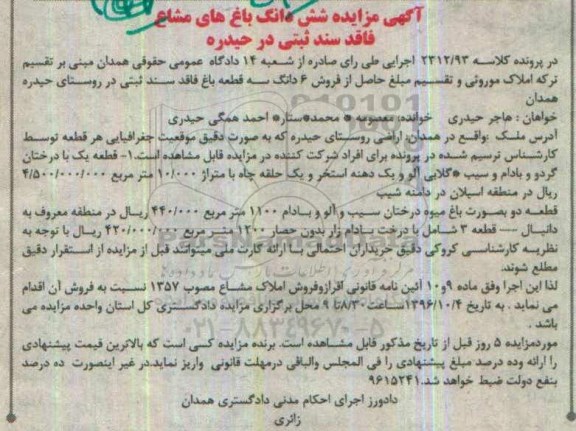 آگهی مزایده شش دانگ باغ های مشاع
فاقد سند ثبتی در حیدره
در پرونده کلاسه ۲۳۱۲/۹۳ اجرایی طی رای صادره از شعبه ۱۴ دادگاه عمومی حقوقی همدان مبنی بر تقسیم
ترکه املاک موروثی و تقسیم مبلغ حاصل از فروش ۶ دانگ سه قطعه باغ فاقد سند ثبتی در روستای حیدره
همدان
خواهان : هاجر حیدری خوانده: معصومه * محمد*ستار* احمد همگی حیدری
آدرس ملک :واقع در همدان، اراضی روستای حیدره که به صورت دقیق موقعیت جغرافیایی هر قطعه توسط
کارشناس ترسیم شده در پرونده برای افراد شرکت کننده در مزایده قابل مشاهده است.۱- قطعه یک با درختان
گردو و بادام و سیب *گلابی آلو و یک دهنه استخر و یک حلقه چاه با متراژ ۱۰/۰۰۰ متر مربع ۴/۵۰۰/۰۰۰/۰۰۰
ریال در منطقه اسیلان در دامنه شیب
قطعه دو بصورت باغ میوه درختان سیب و آلو و بادام ۱۱۰۰ متر مربع ۴۴۰/۰۰۰ ریال در منطقه معروف به
دانیال --- قطعه ۳ شامل با درخت بادام زار بدون حصار ۱۲۰۰ متر مربع ۴۲۰/۰۰۰/۰۰۰ ریال با توجه به
نظریه کارشناسی کروکی دقیق خریداران احتمالی با ارائه کارت ملی میتوانند قبل از مزایده از استقرار دقیق
مطلع شوند.
لذا این اجرا وفق ماده ۹و۱۰ آئین نامه قانونی افرازوفروش املاک مشاع مصوب ۱۳۵۷ نسبت به فروش آن اقدام
می نماید . به تاریخ ۱۳۹۶/۱۰/۴ساعت ۸/۳۰تا ۹ محل برگزاری مزایده دادگستری کل استان واحده مزایده می
باشد .
موردمزایده ۵ روز قبل از تاریخ مذکور قابل مشاهده است. برنده مزایده کسی است که بالاترین قیمت پیشنهادی
را ارائه وده درصد مبلغ پیشنهادی را فی المجلس والباقی درمهلت قانونی واریز نماید.در غیر اینصورت ده درصد
بنفع دولت ضبط خواهد شد.۹۶۱۵۲۴۱
دادورز اجرای احکام مدنی دادگستری همدان
زائری
ParsNamadData
۰۲۱-۸۸۳۴۹۶۷۰-۵